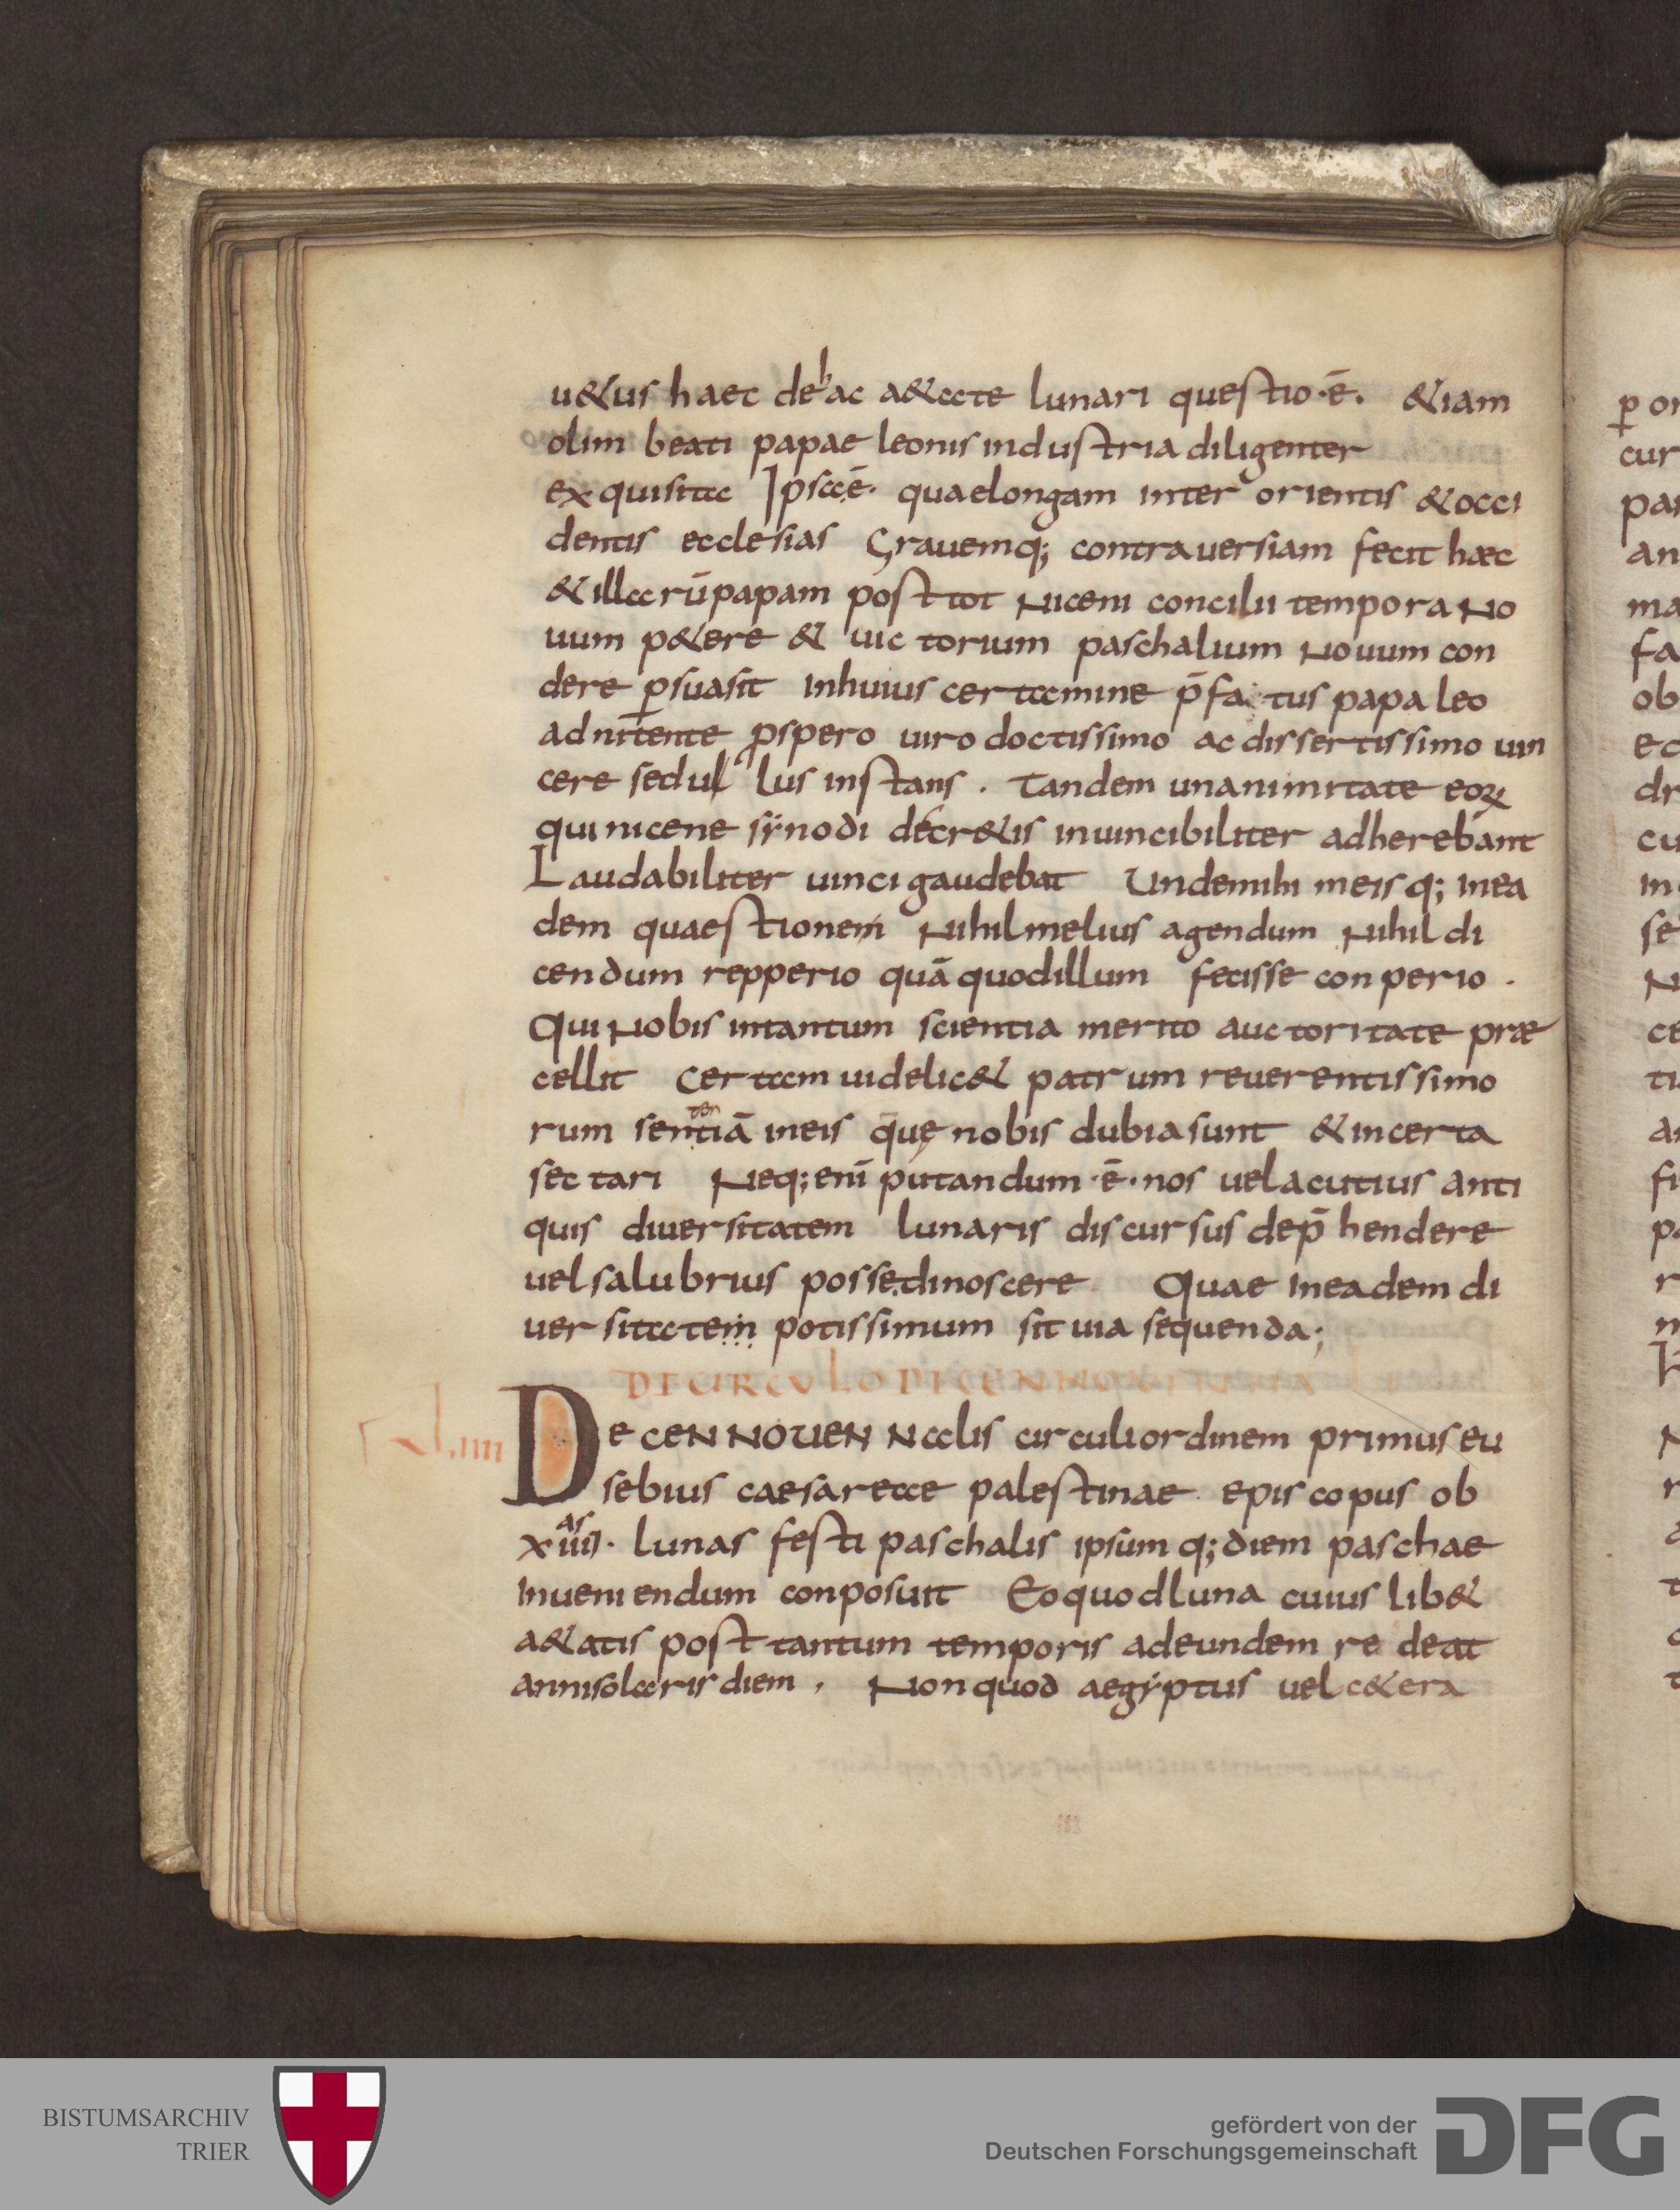 u&us haec de hac a&ate lunari questio·ē· &iam
olim beati papae leonis industria diligenter
exquisita Ipsa ē· quae longam inter orientis & occi
dentis ecclesias Grauemq; contrauersiam fecit haec
& illarū papam post tot Niceni concilii tempora No
uum p&ere & uictorium paschalium Nouum con
dere p̱suasit In huius certamine p̄fatus papa leo
adnitente ꝓspero uiro doctissimo ac dissertissimo uin
cere sedullus instans . Tandem unanimitate eoꝝ
qui nicene sÿnodi decr&is inuincibiliter adherebant
Laudabiliter uinci gaudebat Unde mihi meisq; in ea
dem quaestionem Nihil melius agendum Nihil di
cendum repperio quā quod illum fecisse conperio .
Qui Nobis in tantum scientia merito auctoritate præ
cellit Certam uidelic& patrum reuerentissimo
rum sententiā in eis q̄uę nobis dubia sunt & incerta
sectari Neq; enī putandum·ē·nos uel acutius anti
quis diuersitatem lunaris discursus dep̄hendere
uel salubrius posse dinoscere Quae in eadem di
uersitatem potissimum sit uia sequenda;
DE CIRCULO DECENNOUENNALI
.Xliiii
DECENNOUENNalis circuli ordinem primus eu
sebius caesareae palestinae episcopus ob
xiiii as · lunas festi paschalis ipsumq; diem paschae
Inueniendum conposuit Eo quod luna cuius lib&
a&atis post tantum temporis ad eundem redeat
anni solaris diem . Non quod aegÿptus uel c&era
BISTUMSARCHIV
TRIER
gefördert von der
Deutschen Forschungsgemeinschaft
DFG